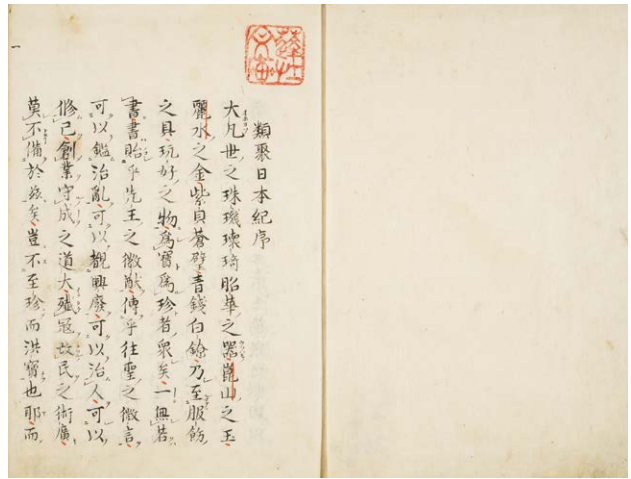 類聚日本紀序
大凡世之珠璣瓌琦昭華之器崑山之玉
麗水之金紫貝蒼璧青錢白鏹乃至服飾
之具玩好之物為寶為珍者衆矣一無若
書書貽乎先王之徽猷傳乎往聖之微言
可以鑑治亂可以觀興廢可以治人可以
脩己創業守成之道大強冦牧民之術廣
莫不備於焉矣豈不至珍而洪寶也耶而